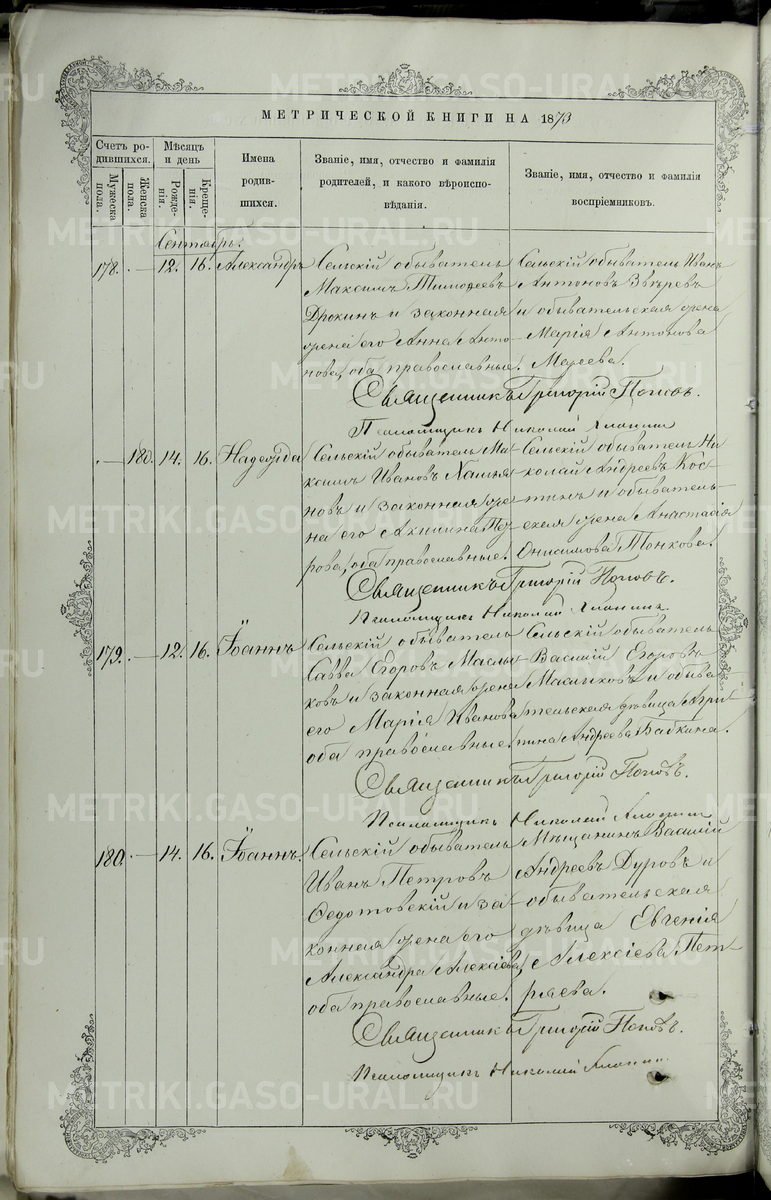 МЕТРИЧЕСКОЙ КНИГИ НА 1873
Счетъ ро-
дившихся.
Мужеска
пола.
Женска
пола.
Мѣсяцъ
и день
Рожде-
нія.
Креще-
нія.
Имена
родив-
шихся.
Званіе, имя, отчество и фамилія
родителей, и какого вѣроиспо-
вѣданія.
Званіе, имя, отчество и фамилія
воспріемниковъ.
Сентябрь.
178. — 12. 16. Александръ
Сельскій обыватель
Максимъ Тимоѳеевъ
Дрокинъ и законная
жена его Анна Анто-
нова, оба православные.
Сельскій обыватель Иванъ
Антоновъ Звѣревъ
и обывательская жена
Марія Антонова
Священникъ Григорій Поповъ.
Псаломщикъ Николай
— 180. 14. 16. Надежда
Сельскій обыватель Ма-
ксимъ Ивановъ
новъ и законная же-
на его Акилина Пет-
рова, оба православные.
Сельскій обыватель Ни-
колай Андреевъ Кос-
тинъ и обыватель-
ская жена Анастасія
Онисимова Тонкова.
Священникъ Григорій Поповъ.
Псаломщикъ Николай
179. — 12. 16. Іоаннъ
Сельскій обыватель
Савва Егоровъ Маслы-
ковъ и законная жена
его Марія Иванова
оба православные.
Сельскій обыватель
Василій Егоровъ
Маслыковъ и обыва-
тельская дѣвица Агри-
пина Андреева Бабкина.
Священникъ Григорій Поповъ.
Псаломщикъ Николай
180. — 14. 16. Іоаннъ.
Сельскій обыватель
Иванъ Петровъ
Ѳедотовскій и за-
конная жена его
Александра Алексіева,
оба православные.
Мѣщанинъ Василій
Андреевъ Дуровъ и
обывательская
дѣвица Евгенія
Алексіева Пет-
ряева.
Священникъ Григорій Поповъ.
Псаломщикъ Николай
METRIKI.GASO-URAL.RU